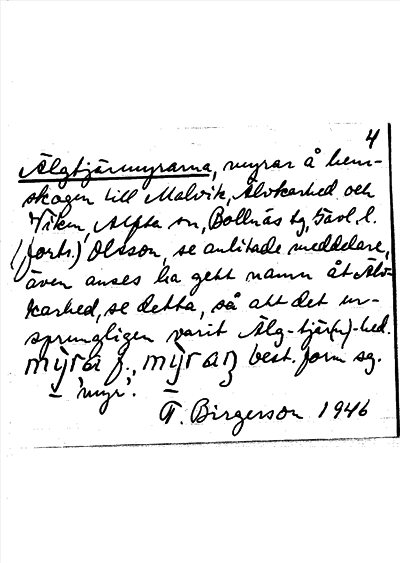 4
Älgtjärmyrarna, myrar å hem-
skogen till Malvik, Älvkarhed och
Viken, Alfta sn, Bollnäs tg, Gävl. l.
(forts.) Olsson, se anlitade meddelare,
även anses ha gett namn åt Älv-
karhed, se detta, så att det ur-
sprungligen varit Älg-tjär(n)-hed.
mỳra f., mỳran best. form sg.
– 'myr'.
T. Birgerson 1946